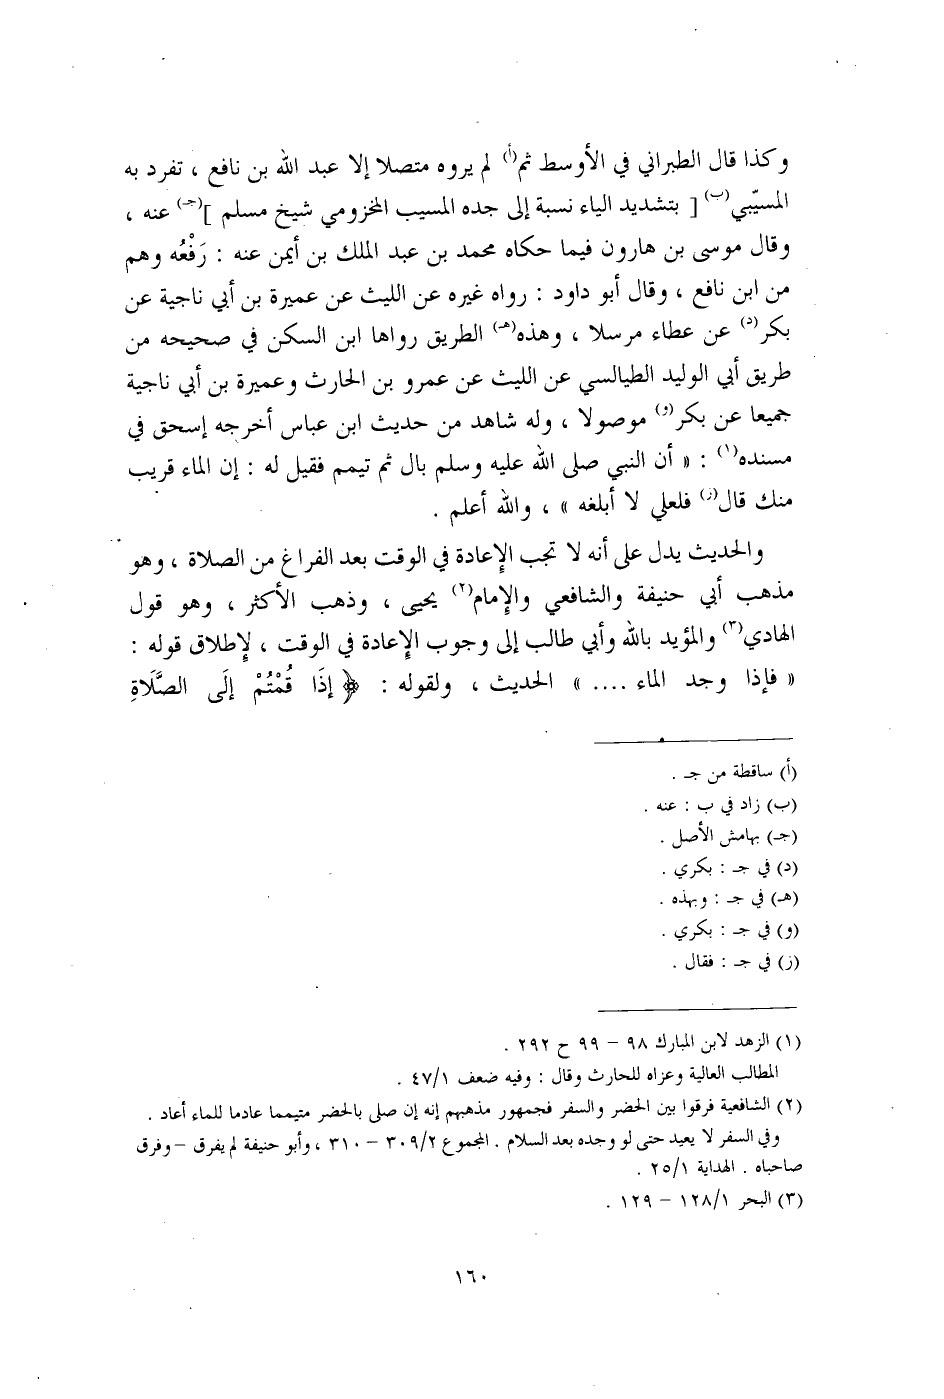 وكذا قال الطبراني في الأوسط ثم(أ) لم يروه متصلا إلا عبد الله بن نافع ، تفرد به
المسيّبي(ب) [ بتشديد الياء نسبة إلى جده المسيب المخزومي شيخ مسلم ](جـ) عنه ،
وقال موسى بن هارون فيما حكاه محمد بن عبد الملك بن أيمن عنه : رَفْعُه وهم
من ابن نافع ، وقال أبو داود : رواه غيره عن الليث عن عميرة بن أبي ناجية عن
بكر(د) عن عطاء مرسلا ، وهذه(هـ) الطريق رواها ابن السكن في صحيحه من
طريق أبي الوليد الطيالسي عن الليث عن عمرو بن الحارث وعميرة بن أبي ناجية
جميعا عن بكر(و) موصولا ، وله شاهد من حديث ابن عباس أخرجه إسحق في
مسنده(١) : « أن النبي صلى الله عليه وسلم بال ثم تيمم فقيل له : إن الماء قريب
منك قال(ز) فلعلي لا أبلغه » ، والله أعلم .
والحديث يدل على أنه لا تجب الإعادة في الوقت بعد الفراغ من الصلاة ، وهو
مذهب أبي حنيفة والشافعي والإمام(٢) يحيى ، وذهب الأكثر ، وهو قول
الهادي(٣) والمؤيد بالله وأبي طالب إلى وجوب الإعادة في الوقت ، لإطلاق قوله :
« فإذا وجد الماء .... » الحديث ، ولقوله : ﴿ إذَا قُمْتُمْ إلَى الصَّلَاةِ
(أ) ساقطة من جـ .
(ب) زاد في ب : عنه .
(جـ) بهامش الأصل .
(د) في جـ : بكري .
(هـ) في جـ : وبهذه .
(و) في جـ : بكري .
(ز) في جـ : فقال .
(١) الزهد لابن المبارك ٩٨ – ٩٩ ح ٢٩٢ .
المطالب العالية وعزاه للحارث وقال : وفيه ضعف ٤٧/١ .
(٢) الشافعية فرقوا بين الحضر والسفر فجمهور مذهبهم إنه إن صلى بالحضر متيمما عادما للماء أعاد .
وفي السفر لا يعيد حتى لو وجده بعد السلام . المجموع ٣٠٩/٢ – ٣١٠ ، وأبو حنيفة لم يفرق – وفرق
صاحباه . الهداية ٢٥/١ .
(٣) البحر ١٢٨/١ – ١٢٩ .
١٦٠